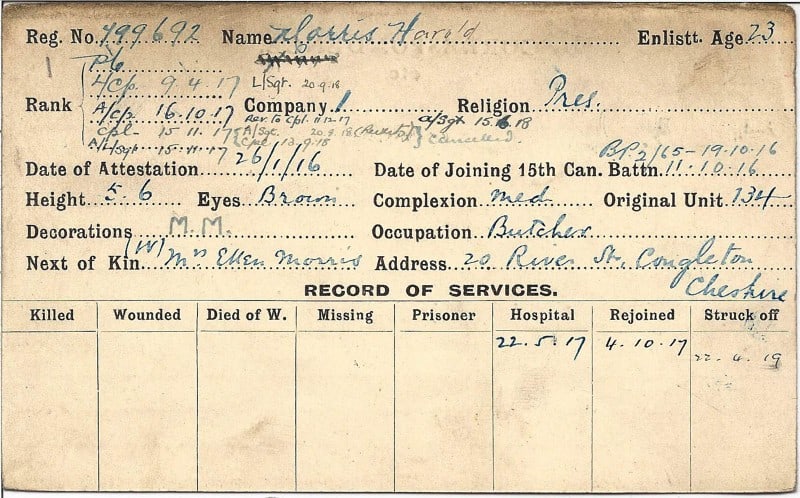 Reg. No. 799692 Name Morris Harold Enlistt. Age 23
1 Pte
L/Cp. 9.4.17 L/Sgt. 20.9.18
Rank A/Cp. 16.10.17 Company 1 Religion Pres.
Rev. to Cpl. 11-12-17 A/Sgt 15.6.18
Cpl 15.11.17 A/Sgt. 20.9.18 Cancelled
A/L/Sgt. 15.11.17 Cpl 13.9.18
BP2/65-19.10.16
Date of Attestation 26/1/16 Date of Joining 15th Can. Battn. 11.10.16
Height 5.6 Eyes Brown Complexion Med. Original Unit 134
Decorations M.M. Occupation Butcher
Next of Kin (W) Mrs Ellen Morris Address 20 River St, Congleton
Cheshire
RECORD OF SERVICES.
Killed Wounded Died of W. Missing Prisoner Hospital Rejoined Struck off
22.5.17 4.10.17 22.4.19